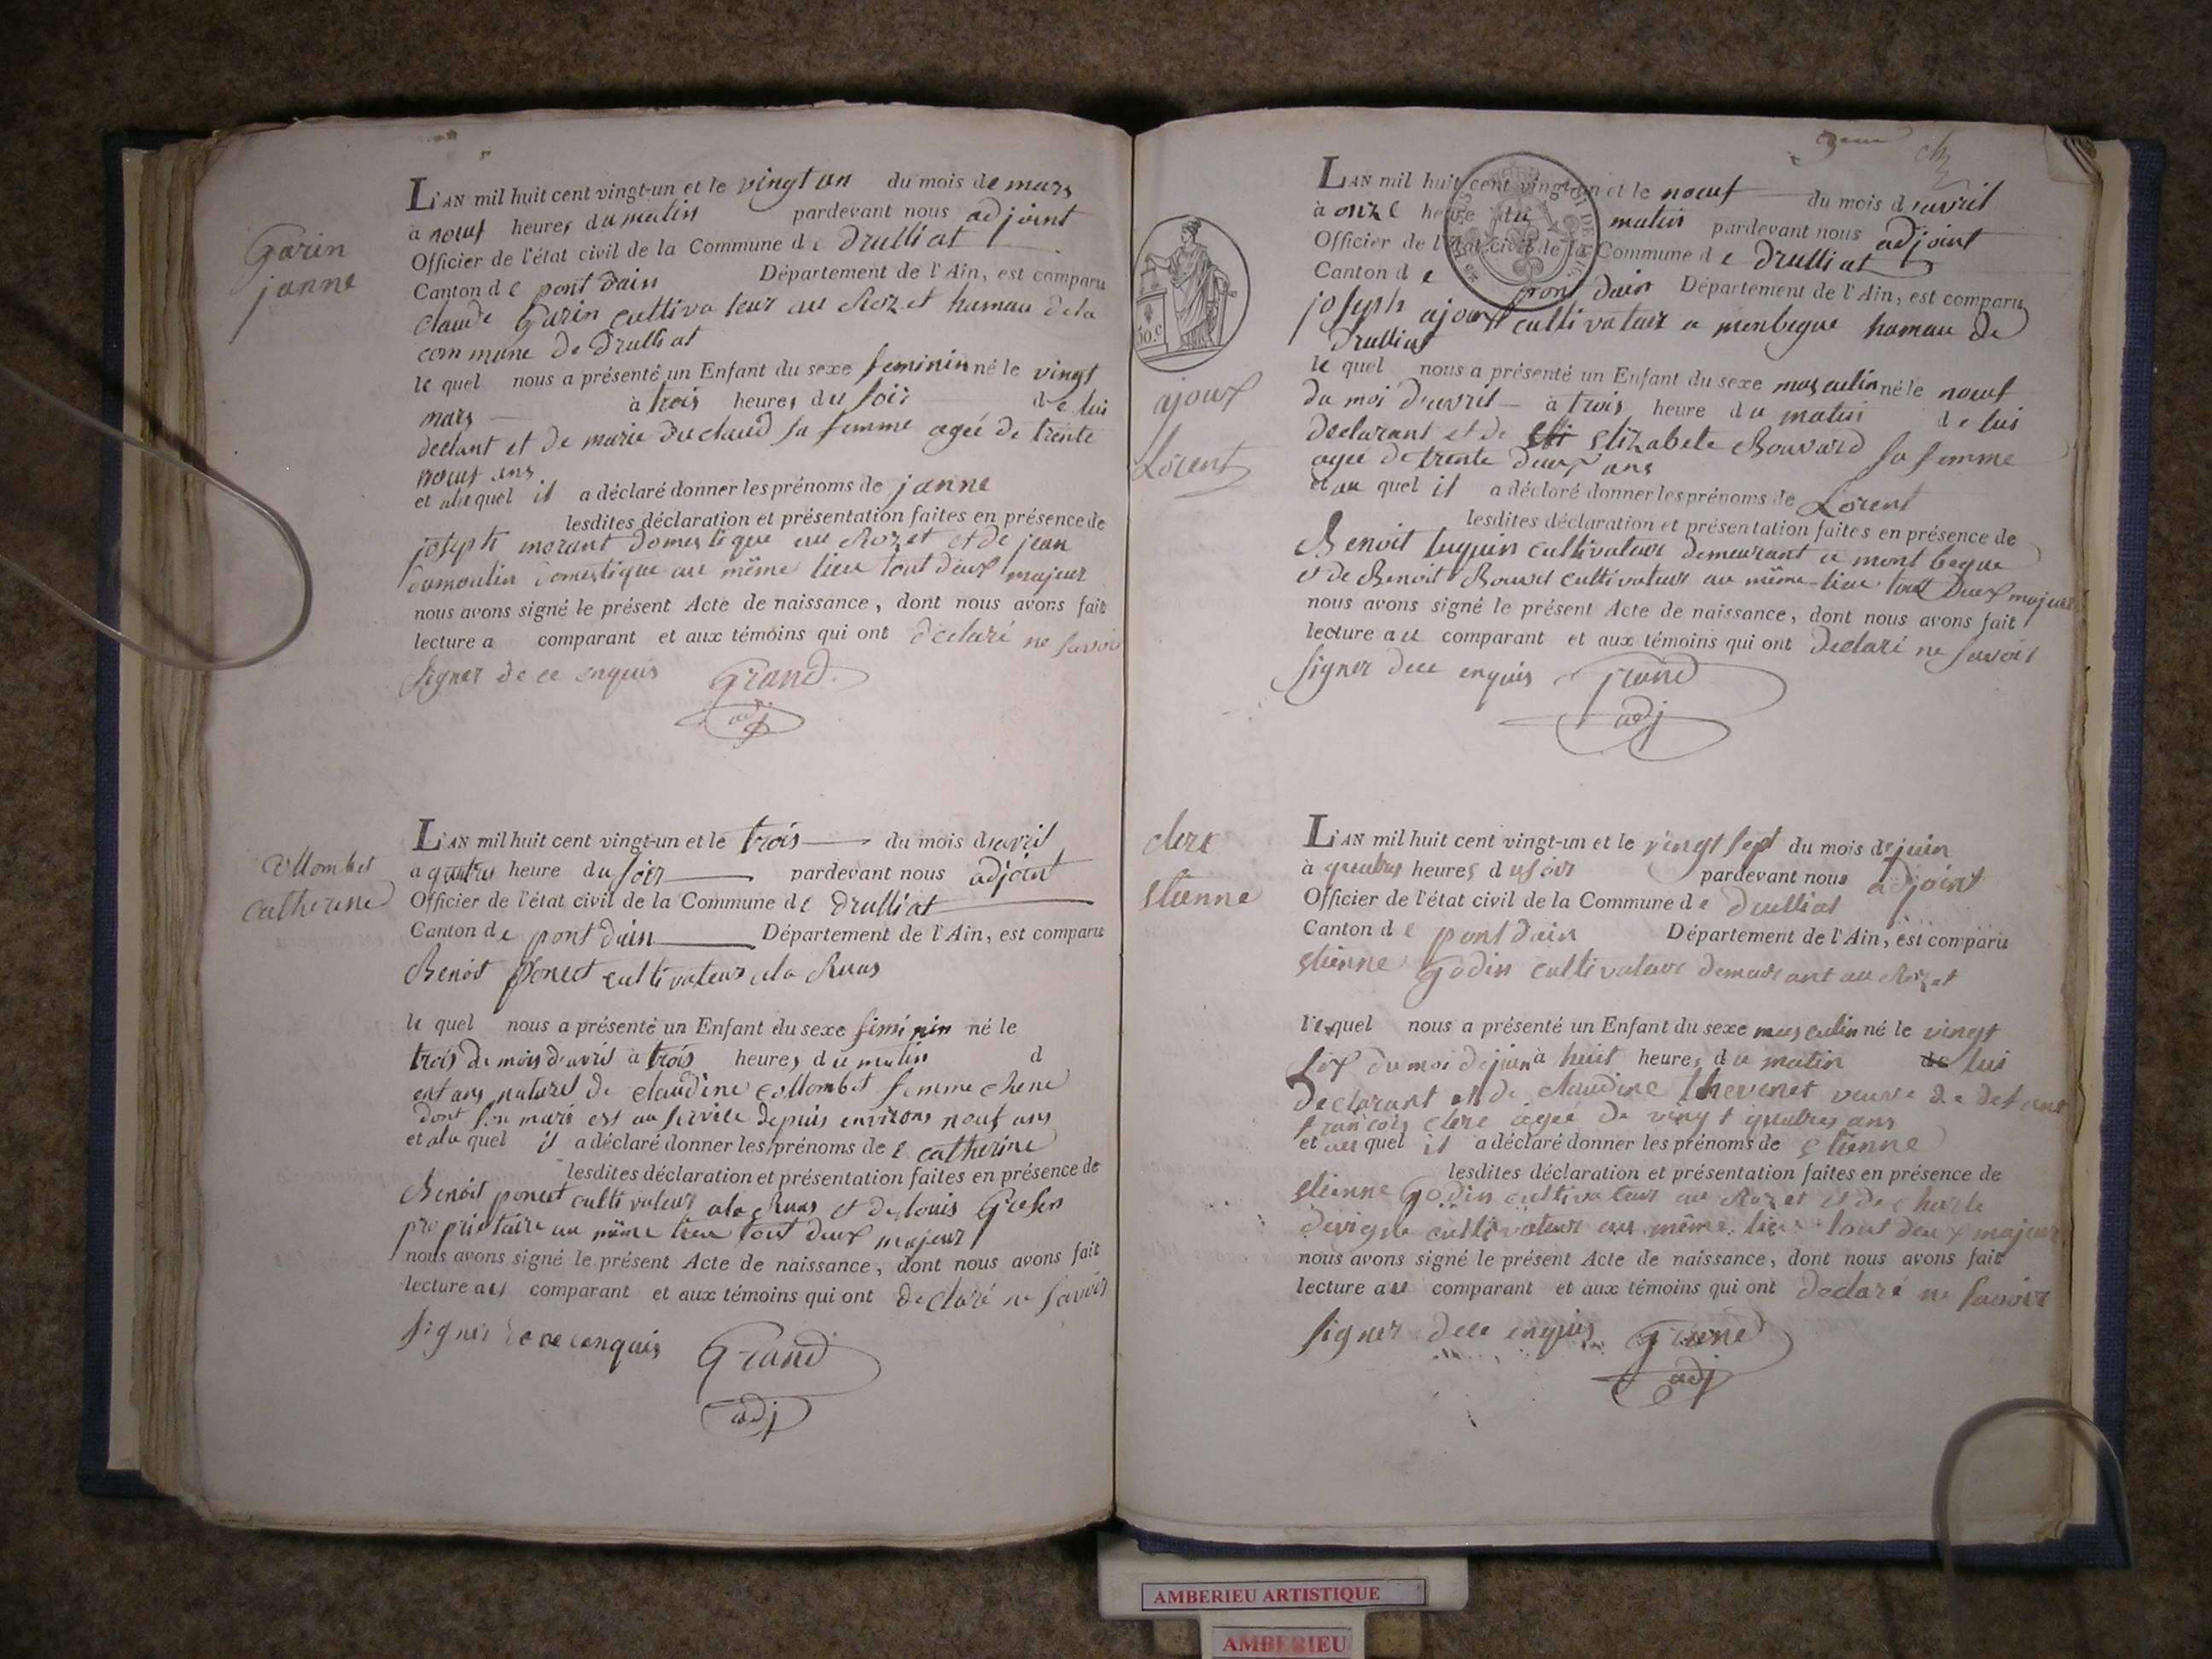 Garin
janne
L'AN mil huit cent vingt-un et le vingt un du mois de mars
à nœuf heures du matin pardevant nous adjoint
Officier de l'état civil de la Commune de Drulliat
Canton de pont dain Département de l'Ain, est comparu
claude Garin cultivateur au Rozet hamau dela
commune de Drulliat
le quel nous a présenté un Enfant du sexe feminin né le vingt
mars à trois heures du soir de lui
declant et de marie Duclaud sa femme agée de trente
nœuf ans
et alaquel il a déclaré donner les prénoms de janne
lesdites déclaration et présentation faites en présence de
joseph morant domestique au Rozet et de jean
dumoulin domestique au même lieu tout deux majeur
nous avons signé le présent Acte de naissance, dont nous avons fait
lecture a comparant et aux témoins qui ont déclaré ne savoir
signer de ce enquis Grand
adj
collombet
catherine
L'AN mil huit cent vingt-un et le trois du mois davril
a quatres heure du soir pardevant nous adjoint
Officier de l'état civil de la Commune de Drulliat
Canton de pont dain Département de l'Ain, est comparu
Benoit poncet cultivateur ala Ruas
le quel nous a présenté un Enfant du sexe feminin né le
trois de mois davril à trois heures du matin d
enfans naturel de claudine collombet femme chene
dont son mari est au service depuis environs nœuf ans
et ala quel il a déclaré donner les prénoms de e catherine
lesdites déclaration et présentation faites en présence de
Benoit poncet cultivateur ala Ruas et de louis
proprietaire au même lieu tout deux majeur
nous avons signé le présent Acte de naissance, dont nous avons fait
lecture aus comparant et aux témoins qui ont declaré ne savoir
signer de ce enquis Grand
adj
ajoux
Lorent
30.c
L'AN mil huit cent vingt-un et le nœuf du mois d'avril
à onze heure du matin pardevant nous adjoint
Officier de l'état civil de la Commune de Drulliat
Canton de pont dain Département de l'Ain, est comparu
joseph ajoux cultivateur a monbegue hamau de
Drulliat
le quel nous a présenté un Enfant du sexe masculin né le nœuf
du moi d'avril à trois heure du matin de lui
declarant et de eli elizabete Bouvard sa femme
agée de trente deux ans
et au quel il a déclaré donner les prénoms de Lorent
lesdites déclaration et présentation faites en présence de
Benoit luquin cultivateur demeurant a mont begue
et de Benoit Bouvet cultivateur au même lieu tout deux majeur
nous avons signé le présent Acte de naissance, dont nous avons fait
lecture au comparant et aux témoins qui ont declaré ne savoir
signer dece enquis Grand
adj
clere
etienne
L'AN mil huit cent vingt-un et le vingt sept du mois de juin
à quatres heures du soir pardevant nous adjoint
Officier de l'état civil de la Commune de Drulliat
Canton de pont dain Département de l'Ain, est comparu
etienne Godin cultivateur demeurant au Rozet
lequel nous a présenté un Enfant du sexe masculin né le vingt
six du moi dejuin à huit heures du matin de lui
Declarant et de claudine thevenet veuve de defunt
francois clere agée de vingt quatres ans
et au quel il a déclaré donner les prénoms de etienne
lesdites déclaration et présentation faites en présence de
etienne Godin cultivateur au Rozet et de charle
devigne cultivateur au même lieu tout deux majeur
nous avons signé le présent Acte de naissance, dont nous avons fait
lecture au comparant et aux témoins qui ont declaré ne savoir
signer dece enquis Grand
adj
AMBERIEU ARTISTIQUE
AMBERIEU